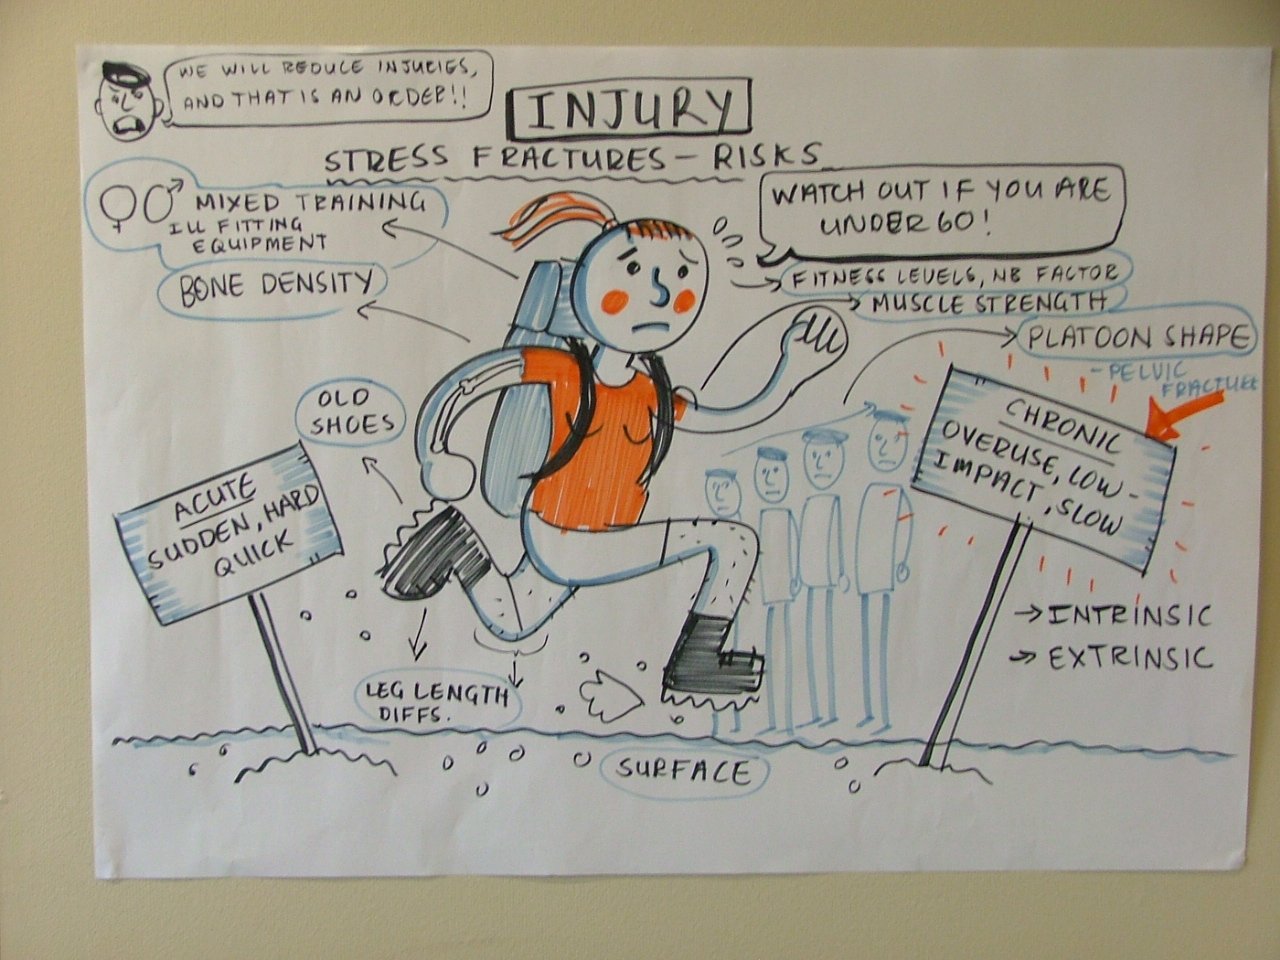 WE WILL REDUCE INJURIES,
AND THAT IS AN ORDER!!
INJURY
STRESS FRACTURES - RISKS
MIXED TRAINING
ILL FITTING
EQUIPMENT
BONE DENSITY
WATCH OUT IF YOU ARE
UNDER 60!
FITNESS LEVELS, NB FACTOR
MUSCLE STRENGTH
PLATOON SHAPE
- PELVIC
FRACTURE
OLD
SHOES
ACUTE
SUDDEN, HARD
QUICK
CHRONIC
OVERUSE, LOW-
IMPACT, SLOW
→ INTRINSIC
→ EXTRINSIC
LEG LENGTH
DIFFS.
SURFACE